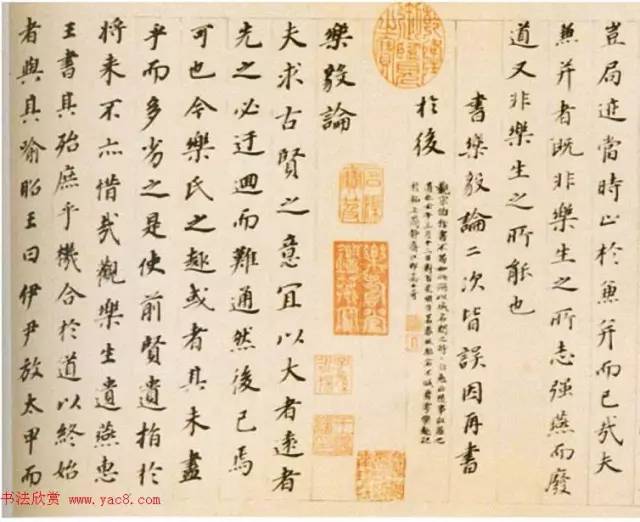 豈局迹當時止於兼并而已哉夫
兼并者既非樂生之所志强燕而廢
道又非樂生之所能也
書樂毅論二次皆誤因再書
於後
樂毅論
夫求古賢之意宜以大者遠者
先之必迂迴而難通然後已焉
可也今樂氏之趣或者其未盡
乎而多劣之是使前賢遺指於
将来不亦惜哉觀樂生遺燕惠
王書其殆庶乎機合於道以終始
者與其喻昭王曰伊尹放太甲而
书法欣赏 www.yac8.com